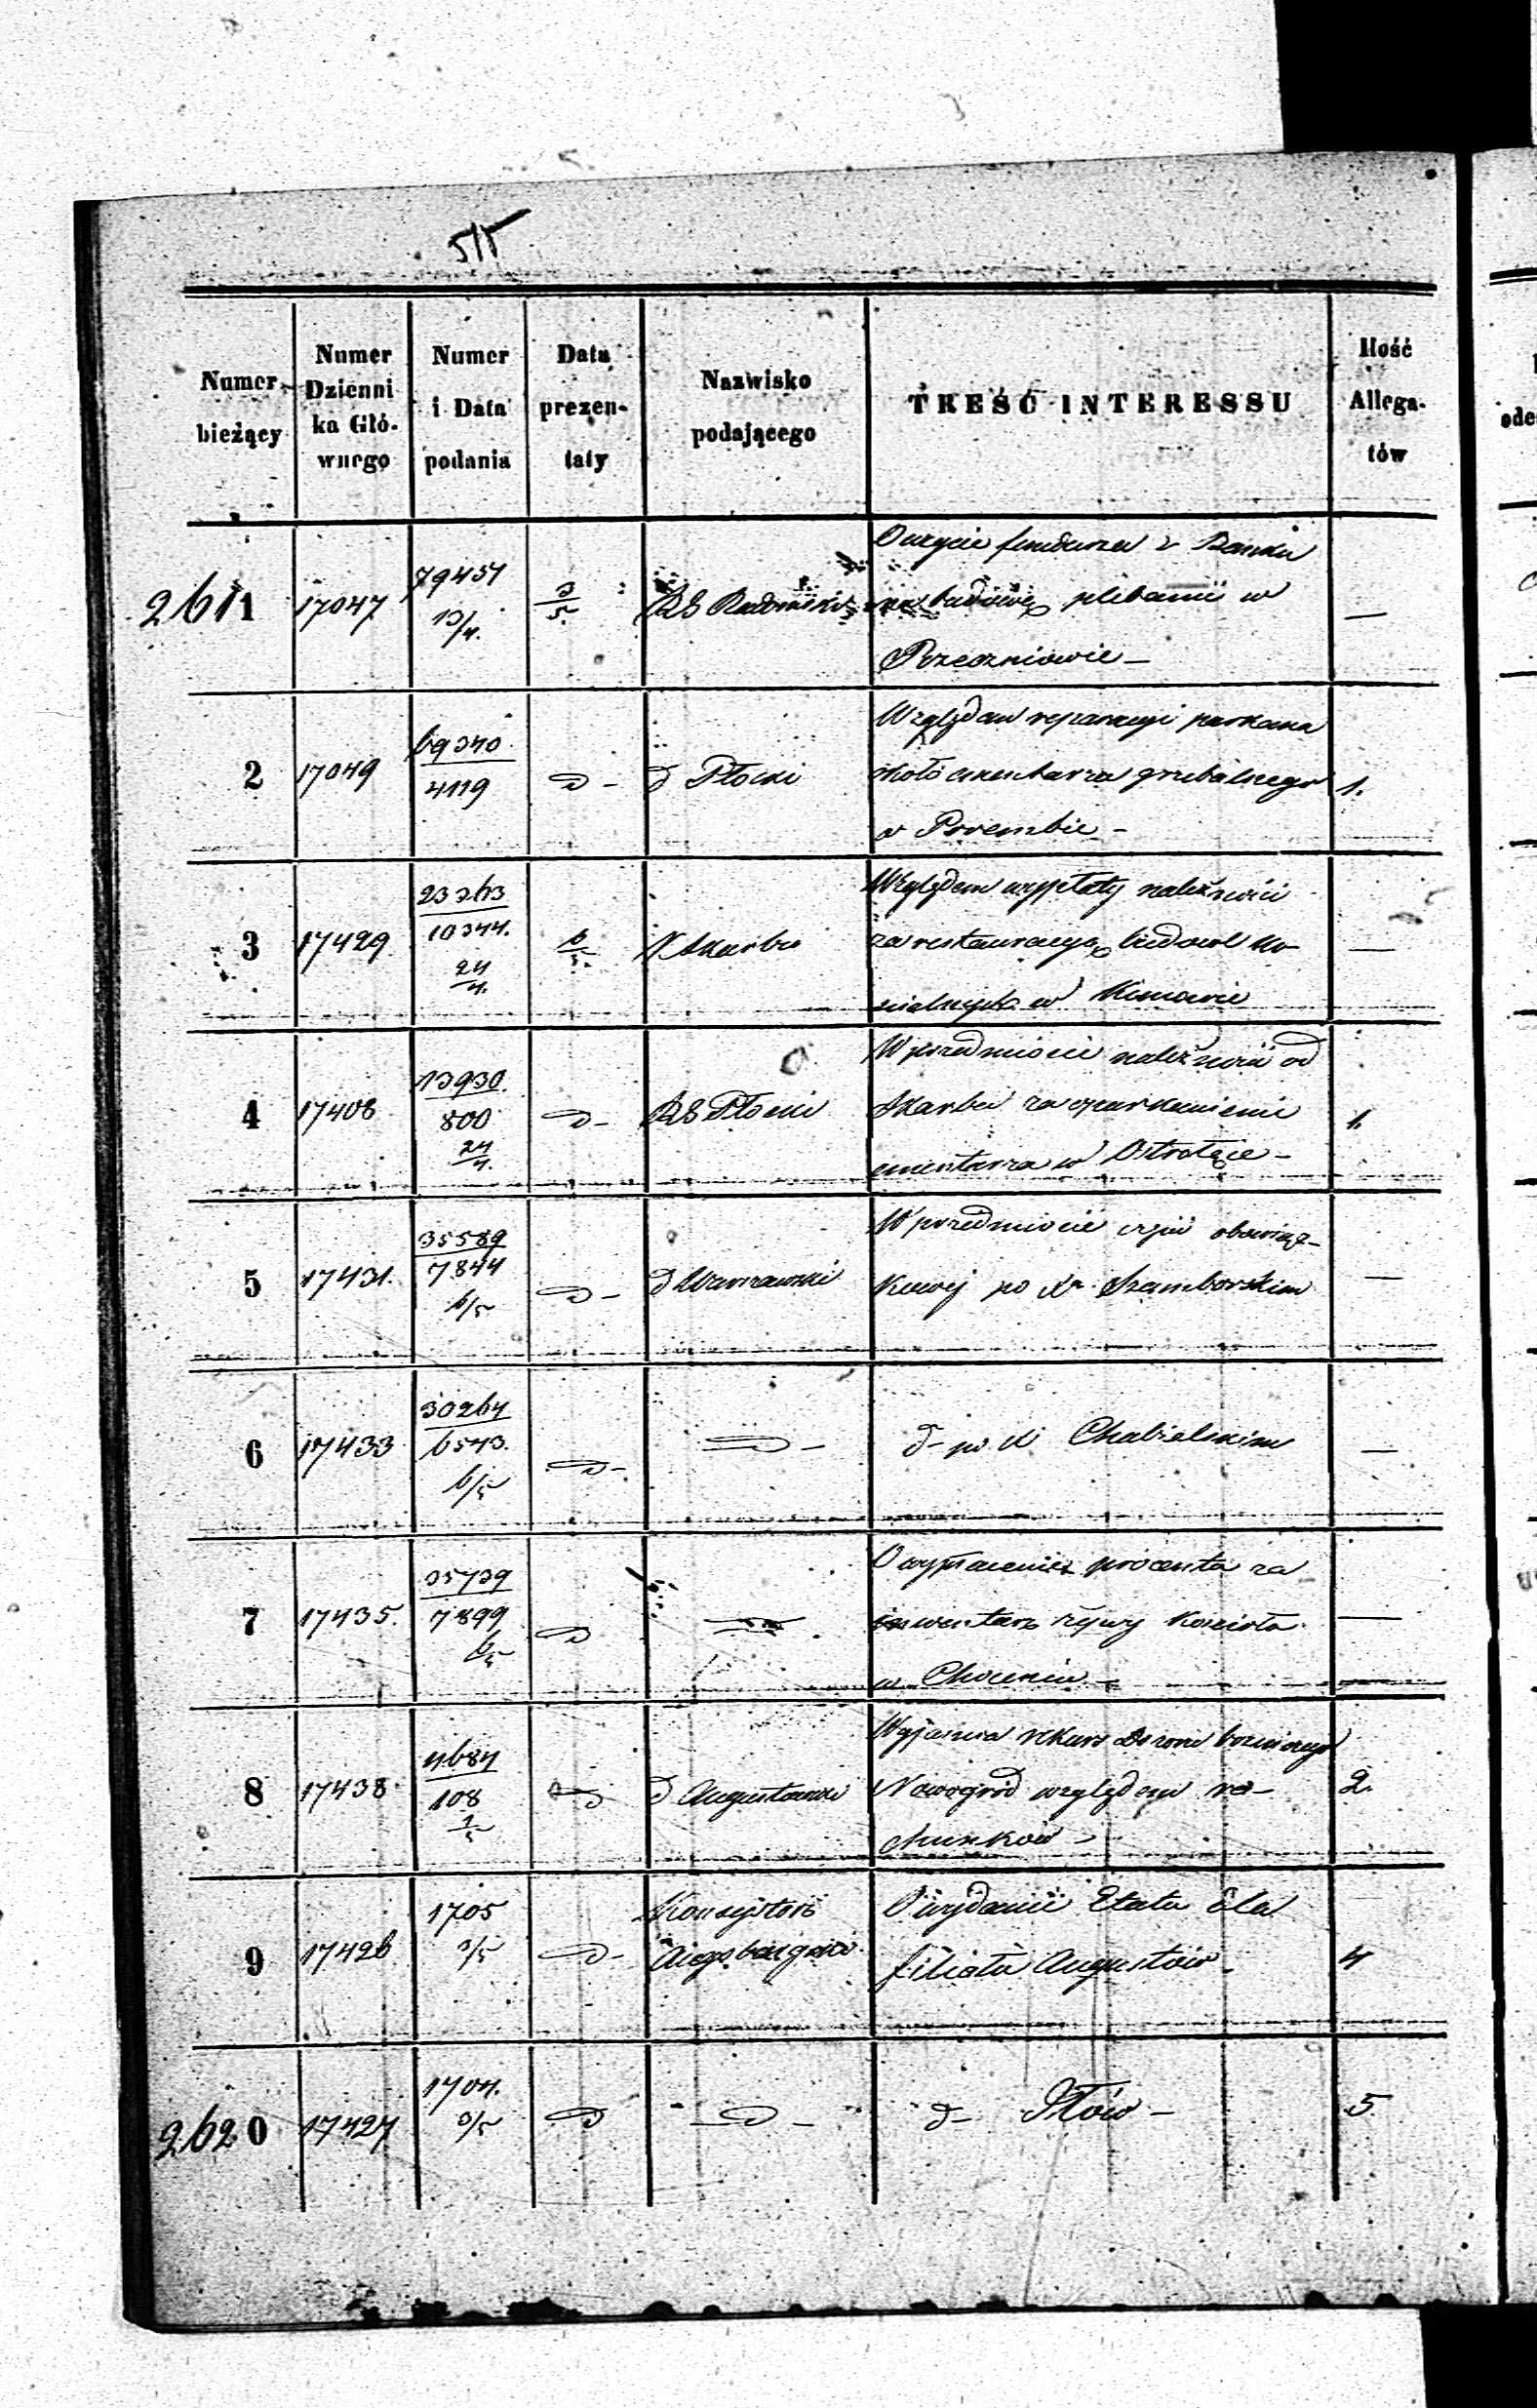 515
Numer bieżący
Numer Dzienni ka Głó- wnego
Numer i Data podania
Data prezen- taty
Nazwisko podającego
TREŚĆ INTERESSU
Ilość Allega- tów
2611 17047 79451 13/4. 3/5. RG Radomski O użycie funduszu z Banku —
na budowę plebanii w
Przeczniowie —
2 17049 69340 4119 d- d Płocki Względem reparacyi parkanu 1.
około cmentarza grzebalnego
w Porembie —
3 17429 23263 10344. 24/4. 6/5. K Skarbu Względem wypłaty należności —
za restauracyą budowl ko-
ścielnych w Kimowie
4 17408 13930. 800 24/4. d- RG Płocki W przedmiocie należności od 1.
Skarbu za oparkanienie
cmentarza w Ostrołęce —
5 17431. 35589 7844 6/5 d- d Warszawski W przedmiocie czyn obowiąz- —
kowej po Xn Szamborskim
6 17433 30264 6543. 6/5 d- d- d- po X Chabielskim —
7 17435. 35739 7899 6/5 d d O wypłacenie procentu za —
inwentarz żywy kościoła
w Choceniu —
8 17438 4684 108 1/5 d d Augustowski Wyjaśnia rekurs Dozoru bożniczego 2.
Nowogród względem ra-
chunków —
9 17426 1705 3/5 d- Konsystorz Augsburgski O wydanie Etatu dla 4
filiału Augustów —
2620 17427 1704. 3/5 d d- d- Iłów — 5